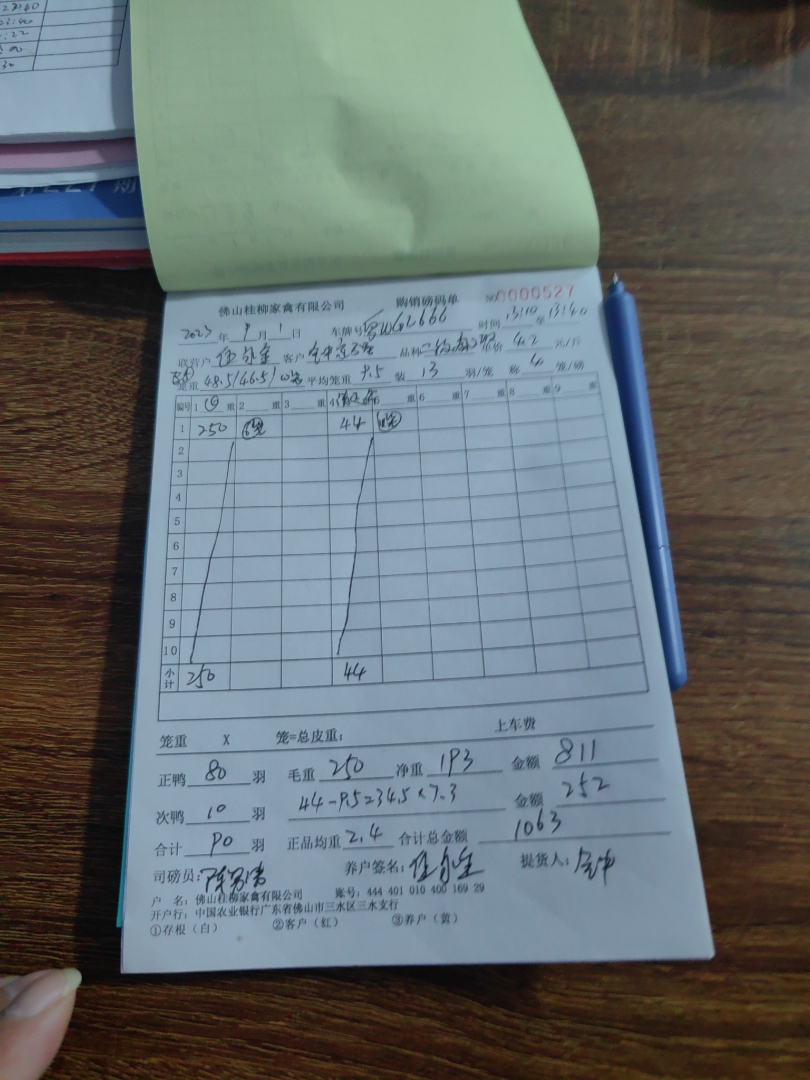 佛山桂柳家禽有限公司 购销磅码单 NO0000527
2023年9月1日 车牌号 时间13:10至13:40
联营户 客户 品种 单价4.2元/斤
笼重48.5/46.5/ 平均笼重9.5 装13羽/笼 称 笼/磅
编号 1 重 2 重 3 重 4 重 5 重 6 重 7 重 8 重 9 重
1 250 6笼 44
2
3
4
5
6
7
8
9
10
小计 250 44
笼重 X 笼=总皮重: 上车费
正鸭 80 羽 毛重 250 净重 193 金额 811
次鸭 10 羽 44-9.5=34.5×7.3 金额 252
合计 90 羽 正品均重 2.4 合计总金额 1063
司磅员: 养户签名: 提货人:
户 名: 佛山桂柳家禽有限公司 账号: 444 401 010 400 169 29
开户行: 中国农业银行广东省佛山市三水区三水支行
①存根(白) ②客户(红) ③养户(黄)